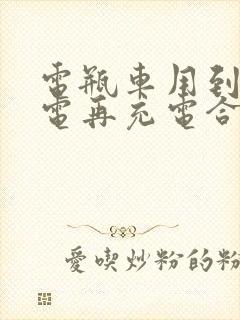 電瓶車用到
電再充電合
愛喫炒粉的粉